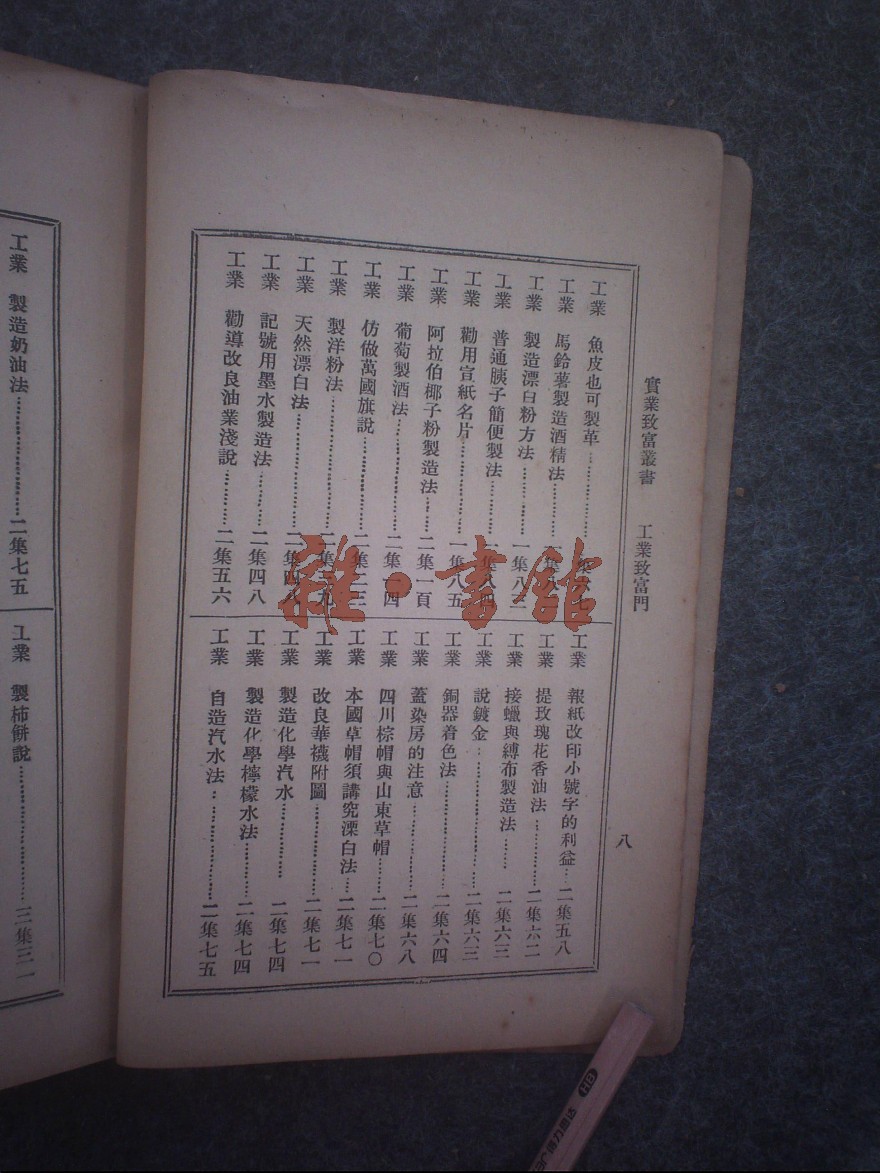 實業致富叢書 工業致富門
八
工業 魚皮也可製革
工業 馬鈴薯製造酒精法
工業 製造漂白粉方法 一集八三
工業 普通胰子簡便製法
工業 勸用宣紙名片 一集八五
工業 阿拉伯椰子粉製造法 二集一頁
工業 葡萄製酒法 二集一四
工業 仿做萬國旗說 二集二三
工業 製洋粉法
工業 天然漂白法 二集四八
工業 記號用墨水製造法 二集四八
工業 勸導改良油業淺說 二集五六
工業 報紙改印小號字的利益 二集五八
工業 提玫瑰花香油法 二集六二
工業 接蠟與縛布製造法 二集六三
工業 說鍍金 二集六三
工業 銅器着色法 二集六四
工業 蓋染房的注意 二集六八
工業 四川棕帽與山東草帽 二集七〇
工業 本國草帽須講究漂白法 二集七一
工業 改良華襪附圖 二集七一
工業 製造化學汽水 二集七四
工業 製造化學檸檬水法 二集七四
工業 自造汽水法 二集七五
工業 製造奶油法 二集七五
工業 製柿餅說 三集三一
雜·書館
HB